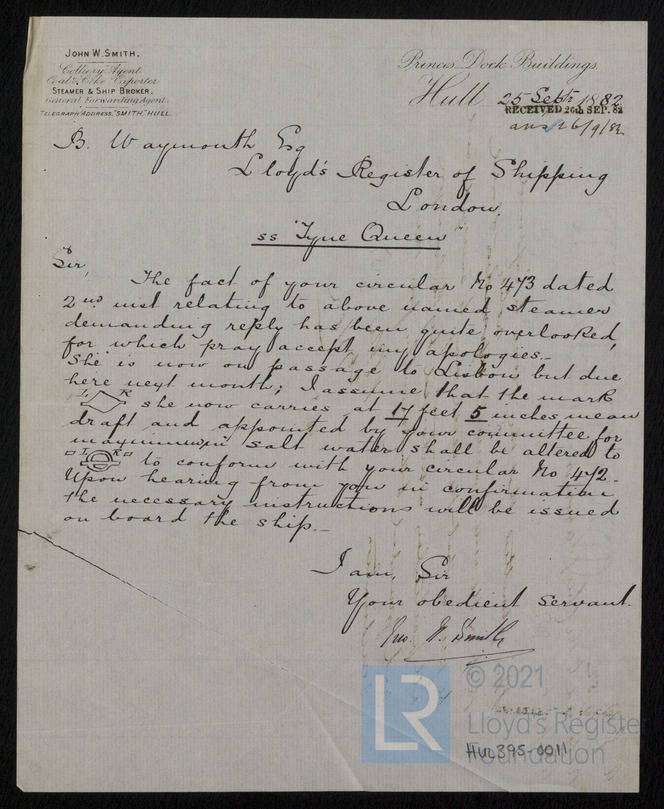 JOHN W. SMITH,
Colliery Agent
Coal & Coke Exporter
STEAMER & SHIP BROKER,
General Forwarding Agent.
TELEGRAPH ADDRESS, "SMITH," HULL.
Princes Dock Buildings,
Hull 25 Sept 1882
RECEIVED 26th SEP. 82
ans 26/9/82
B. Waymouth Esq
Lloyd's Register of Shipping
London.
ss "Tyne Queen"
Sir,
The fact of your circular No 473 dated
2nd inst relating to above named steamer
demanding reply has been quite overlooked,
for which pray accept my apologies.–
She is now on passage to Lisbon but due
here next month; I assume that the mark
L R she now carries at 17 feet 5 inches mean
draft and appointed by your committee for
maximum salt water shall be altered to
L R to conform with your circular No 472.
Upon hearing from you in confirmation
the necessary instructions will be issued
on board the ship.–
I am, Sir
Your obedient servant.
Jno. W. Smith
© 2021
LR
Lloyd's Register
Foundation
HUL395-0011